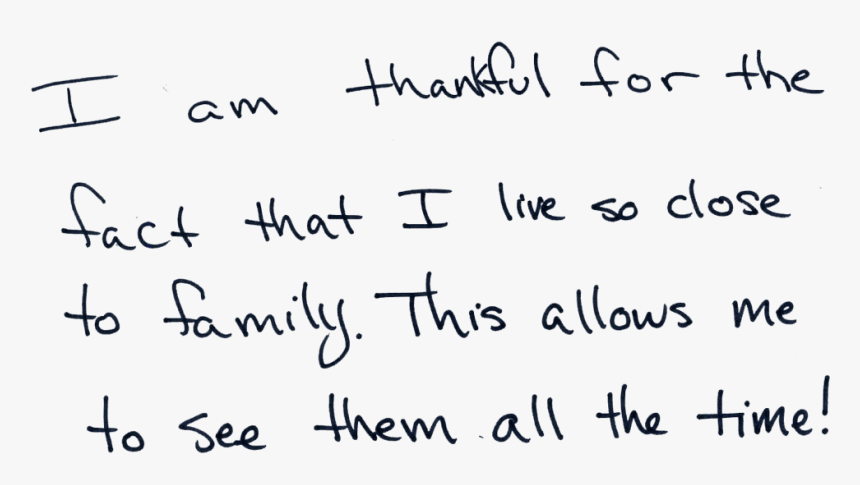 I am thankful for the
fact that I live so close
to family. This allows me
to see them all the time!